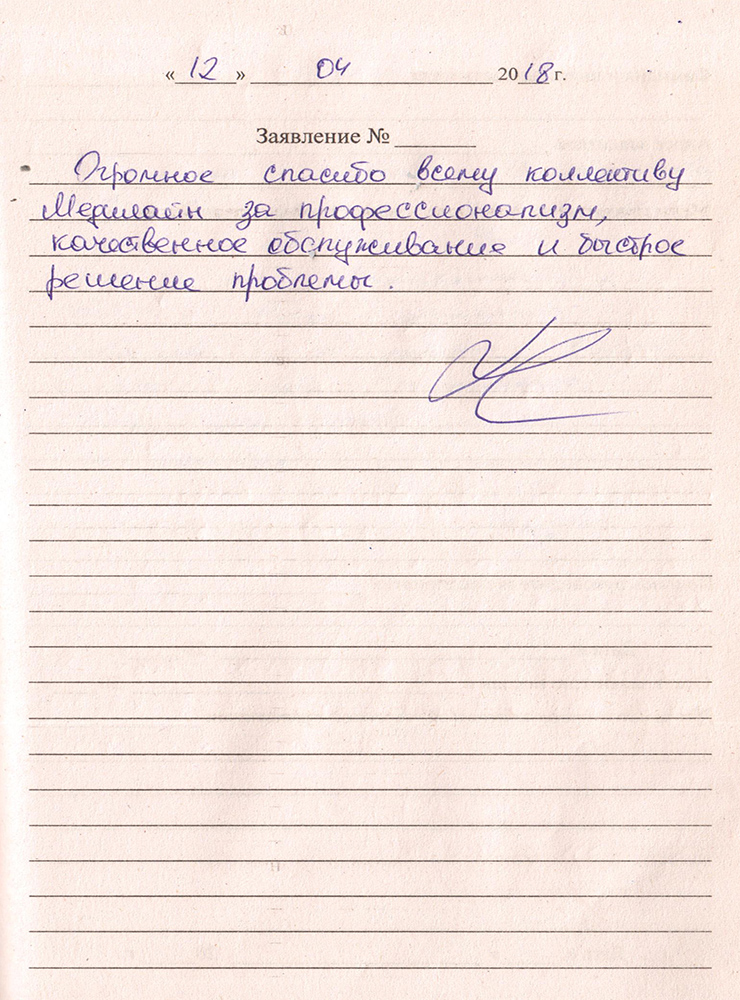 «12» 04 2018 г.
Заявление № ______
Огромное спасибо всему коллективу
Медилайн за профессионализм,
качественное обслуживание и быстрое
решение проблемы.